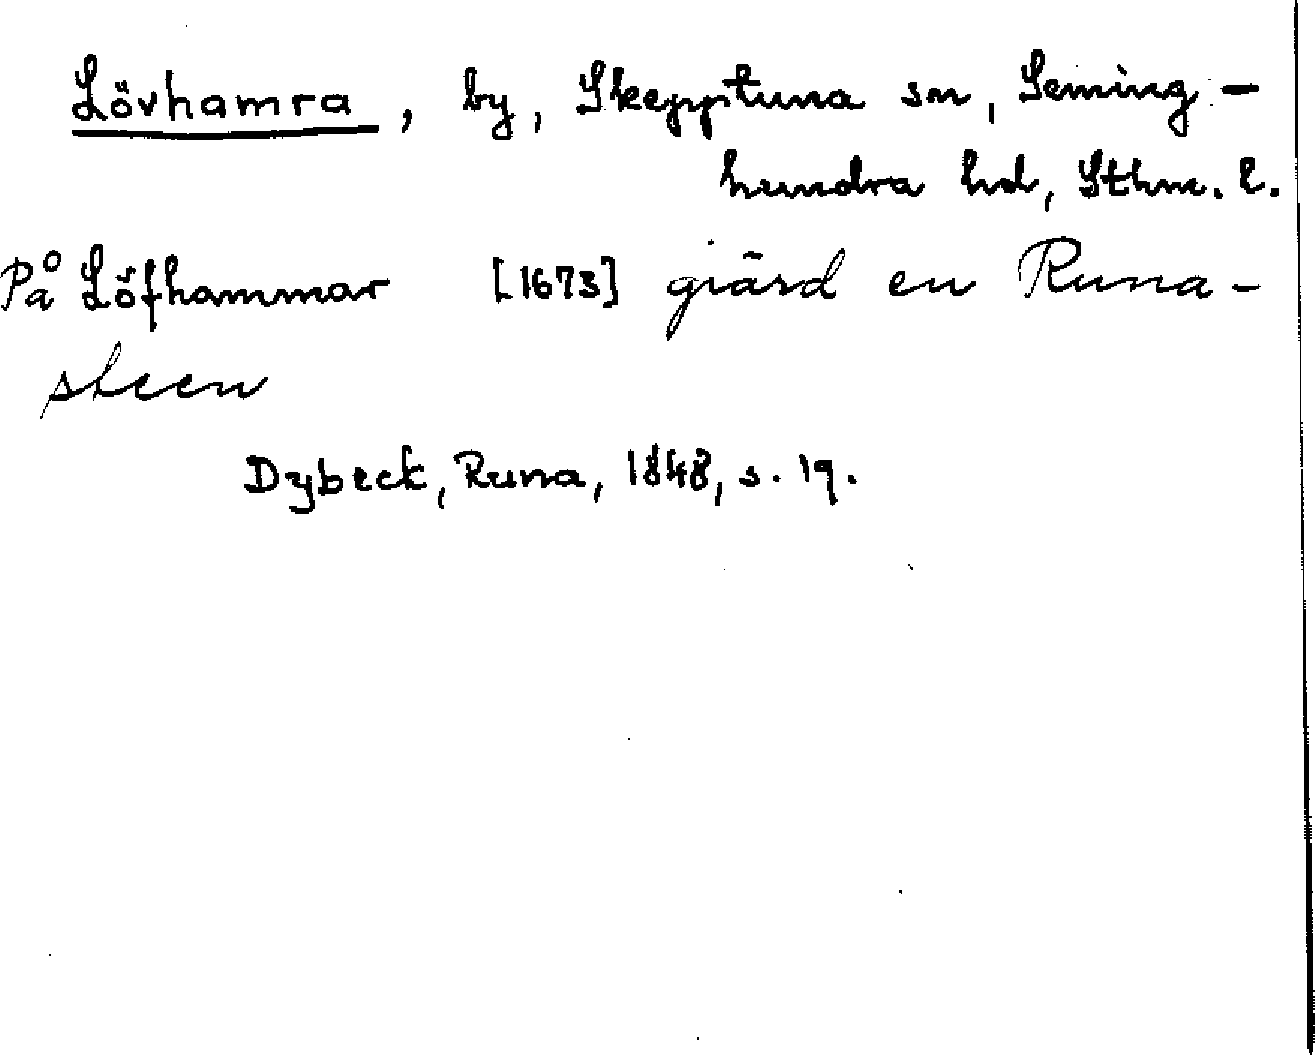 Lövhamra, by, Skepptuna sn, Seming-
hundra hd, Sthm. l.
På Löfhammar [1673] giärd en Runa-
steen
Dybeck, Runa, 1848, s. 19.